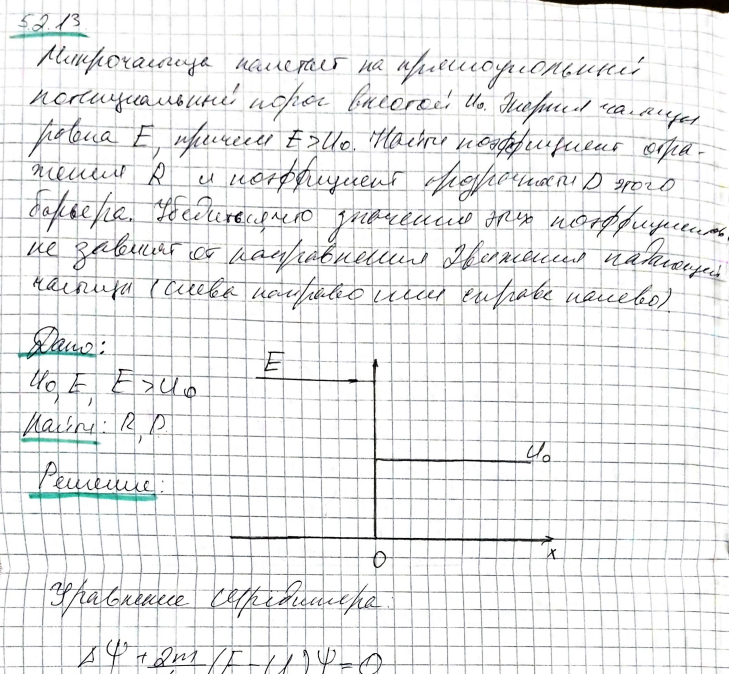 5.2.13
Микрочастица налетает на прямоугольный
потенциальный порог высотой U₀. Энергия частицы
равна E, причем E>U₀. Найти коэффициент отра-
жения R и коэффициент прозрачности D этого
барьера. Убедиться, что значения этих коэффициентов
не зависят от направления движения падающей
частицы (слева направо или справа налево).
Дано:
U₀, E, E>U₀
Найти: R, D
Решение:
E
U₀
0
x
Уравнение Шредингера:
ΔΨ + 2m (E-U)Ψ=0